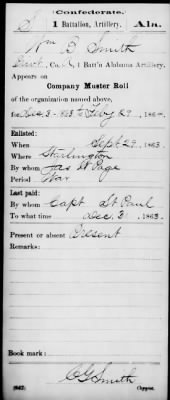 Confederate.
S 1 Battalion, Artillery. Ala.
Wm B Smith
Co. 1 Batt'n Alabama Artillery.
Appears on
Company Muster Roll
of the organization named above,
for Dec 3 - 63 to Feby 29, 1864
Enlisted:
When Sept 29, 1863.
Where
By whom Jas St Page
Period War
Last paid:
By whom Capt St Paul
To what time Dec 31, 1863.
Present or absent Present
Remarks:
Book mark:
(642) C G Smith
Copyist.